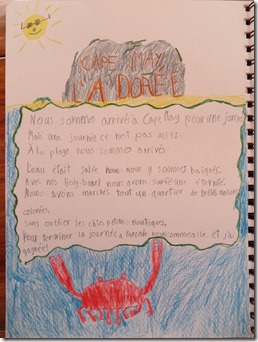 CAPE MAY
LA DORÉE
Nous somme arrivé à Cape May pour une journée
Mais une journée ce n'est pas assez.
À la plage nous sommes arrivés
L'eau était salée nous nous y sommes baignés
Avec nos body-board nous avons surfé une éternité
Nous avons marchés tout un quartier de belle maisons
colorées,
sans oublier les chic petits boutiques,
Pour terminer la journée à arcade nous sommes allé et j'ai
gagnée!